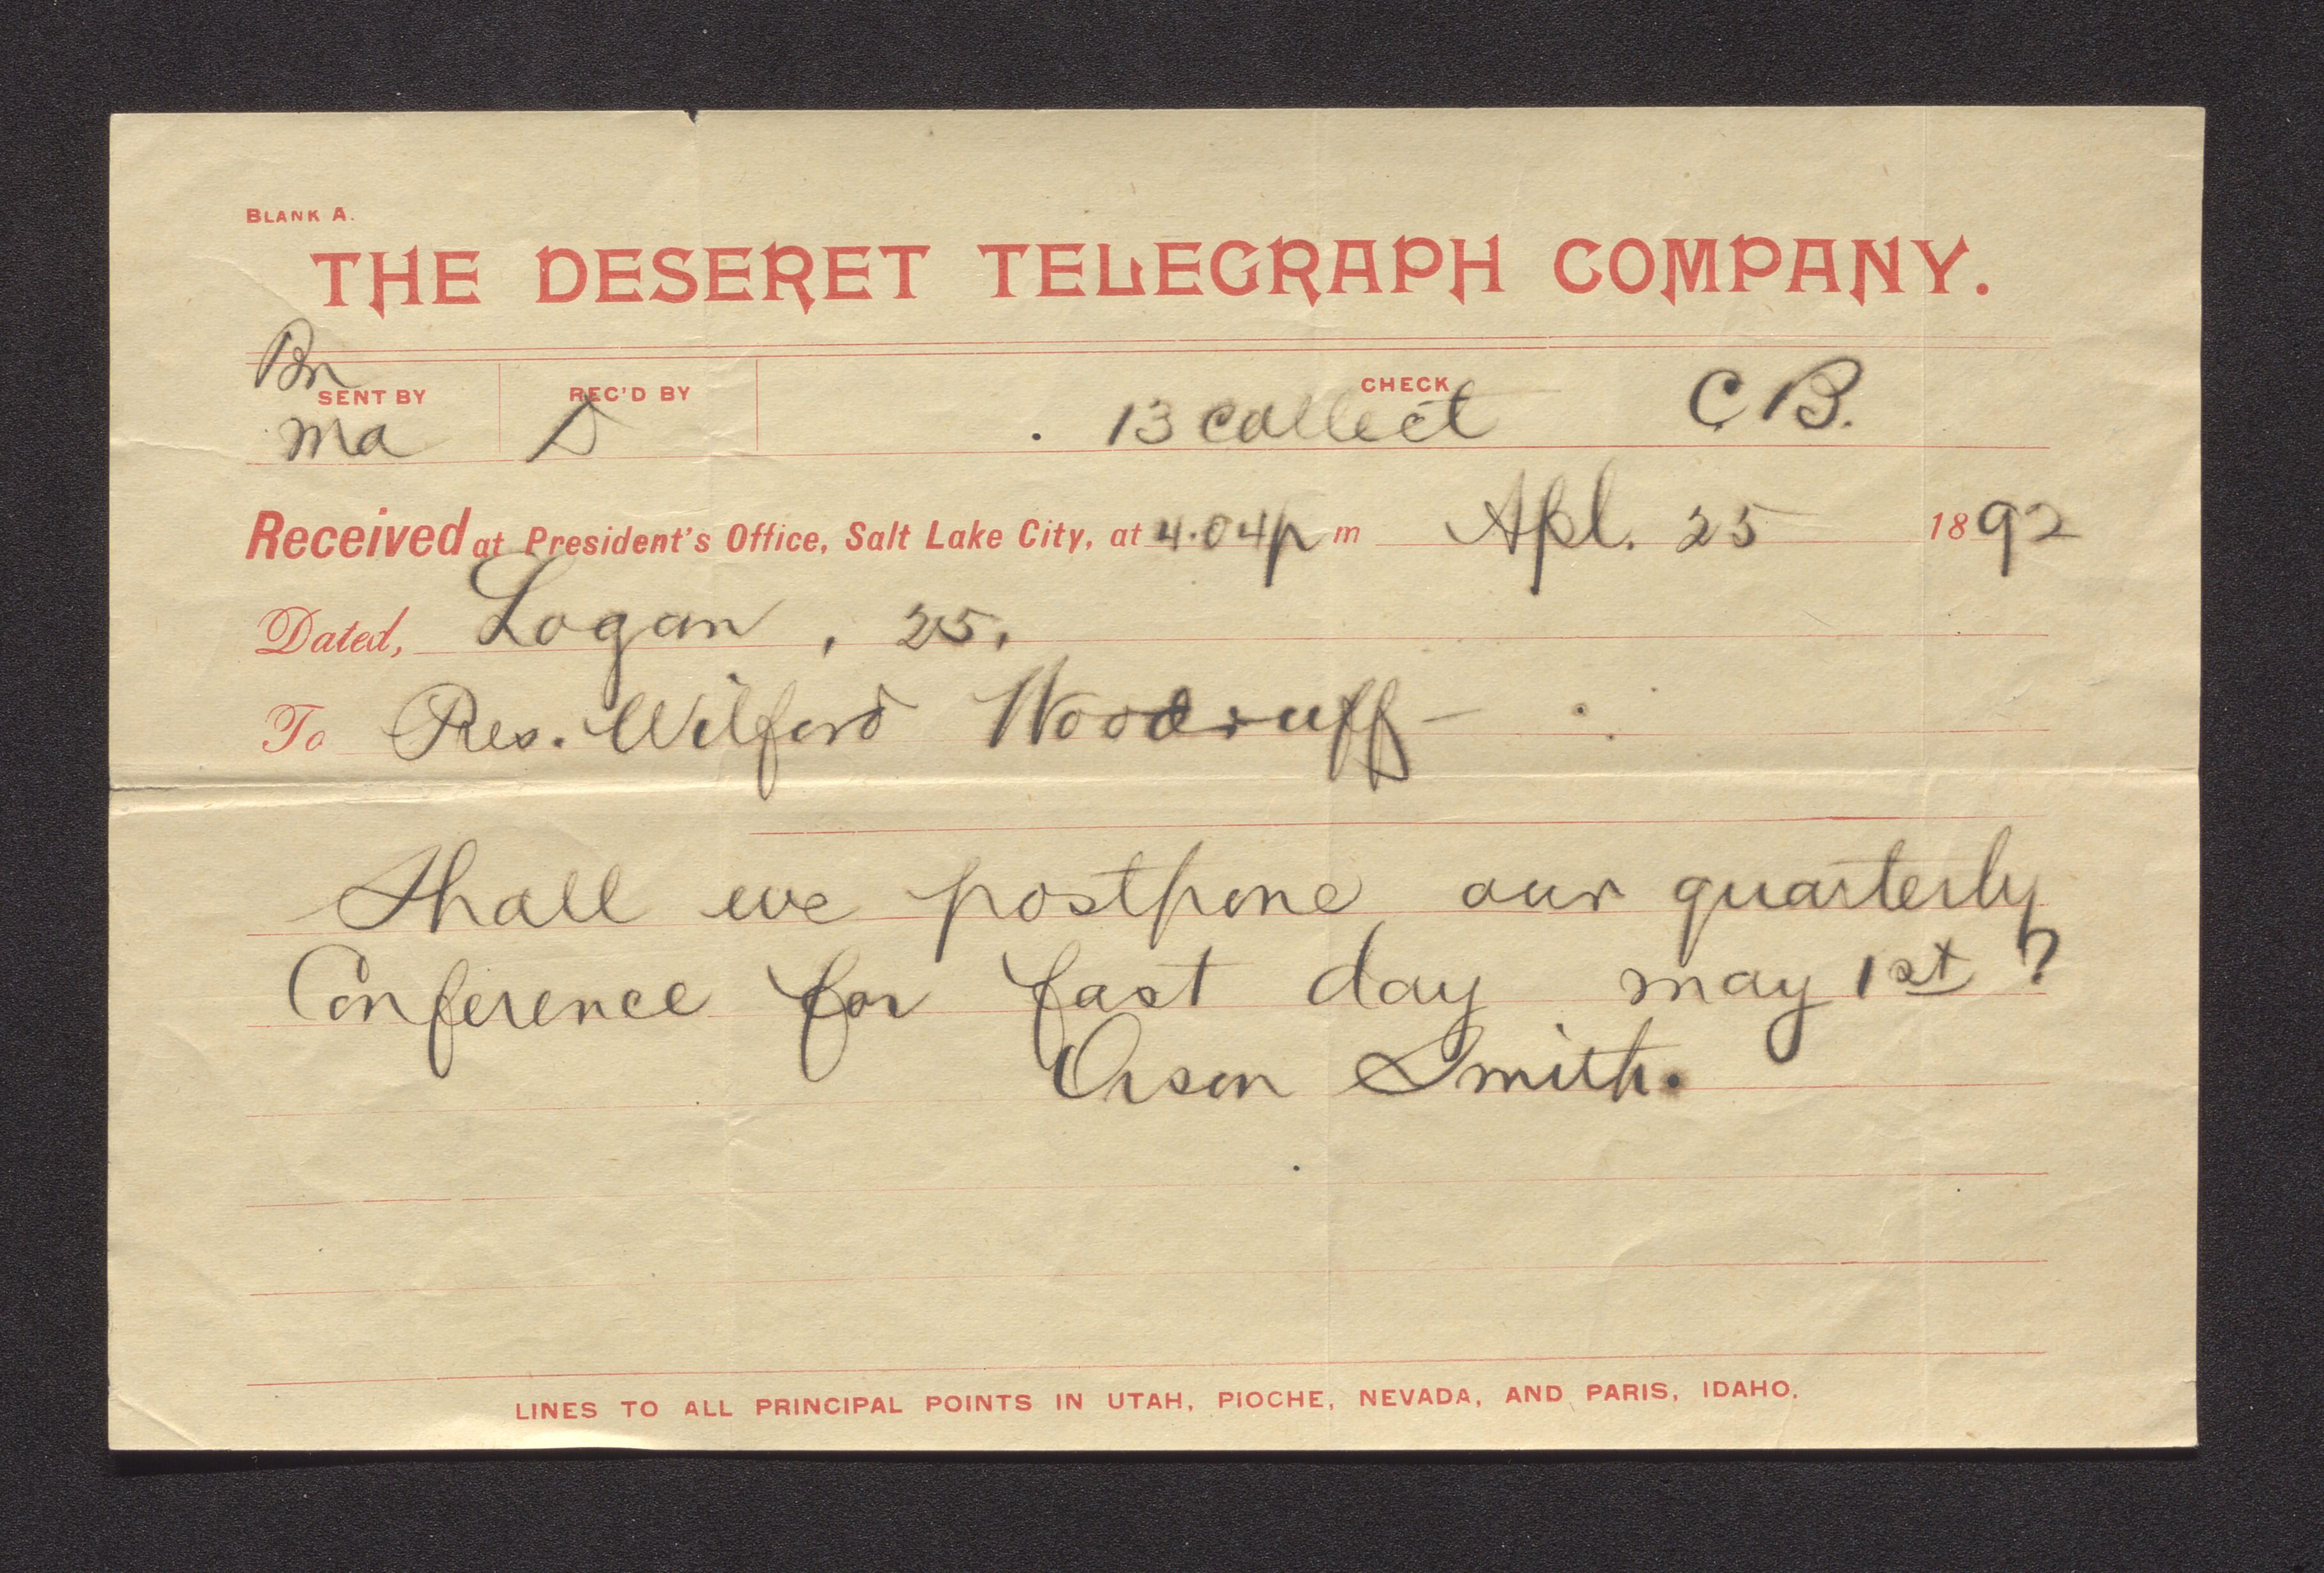 BLANK A.
THE DESERET TELEGRAPH COMPANY.
Bn
SENT BY REC'D BY CHECK
ma D 13 collect C B.
Received at President's Office, Salt Lake City, at 4.04 p m Apl. 25 1892
Dated, Logan, 25,
To Pres. Wilford Woodruff —
Shall we postpone our quarterly
Conference for fast day may 1st ?
Orson Smith.
LINES TO ALL PRINCIPAL POINTS IN UTAH, PIOCHE, NEVADA, AND PARIS, IDAHO.